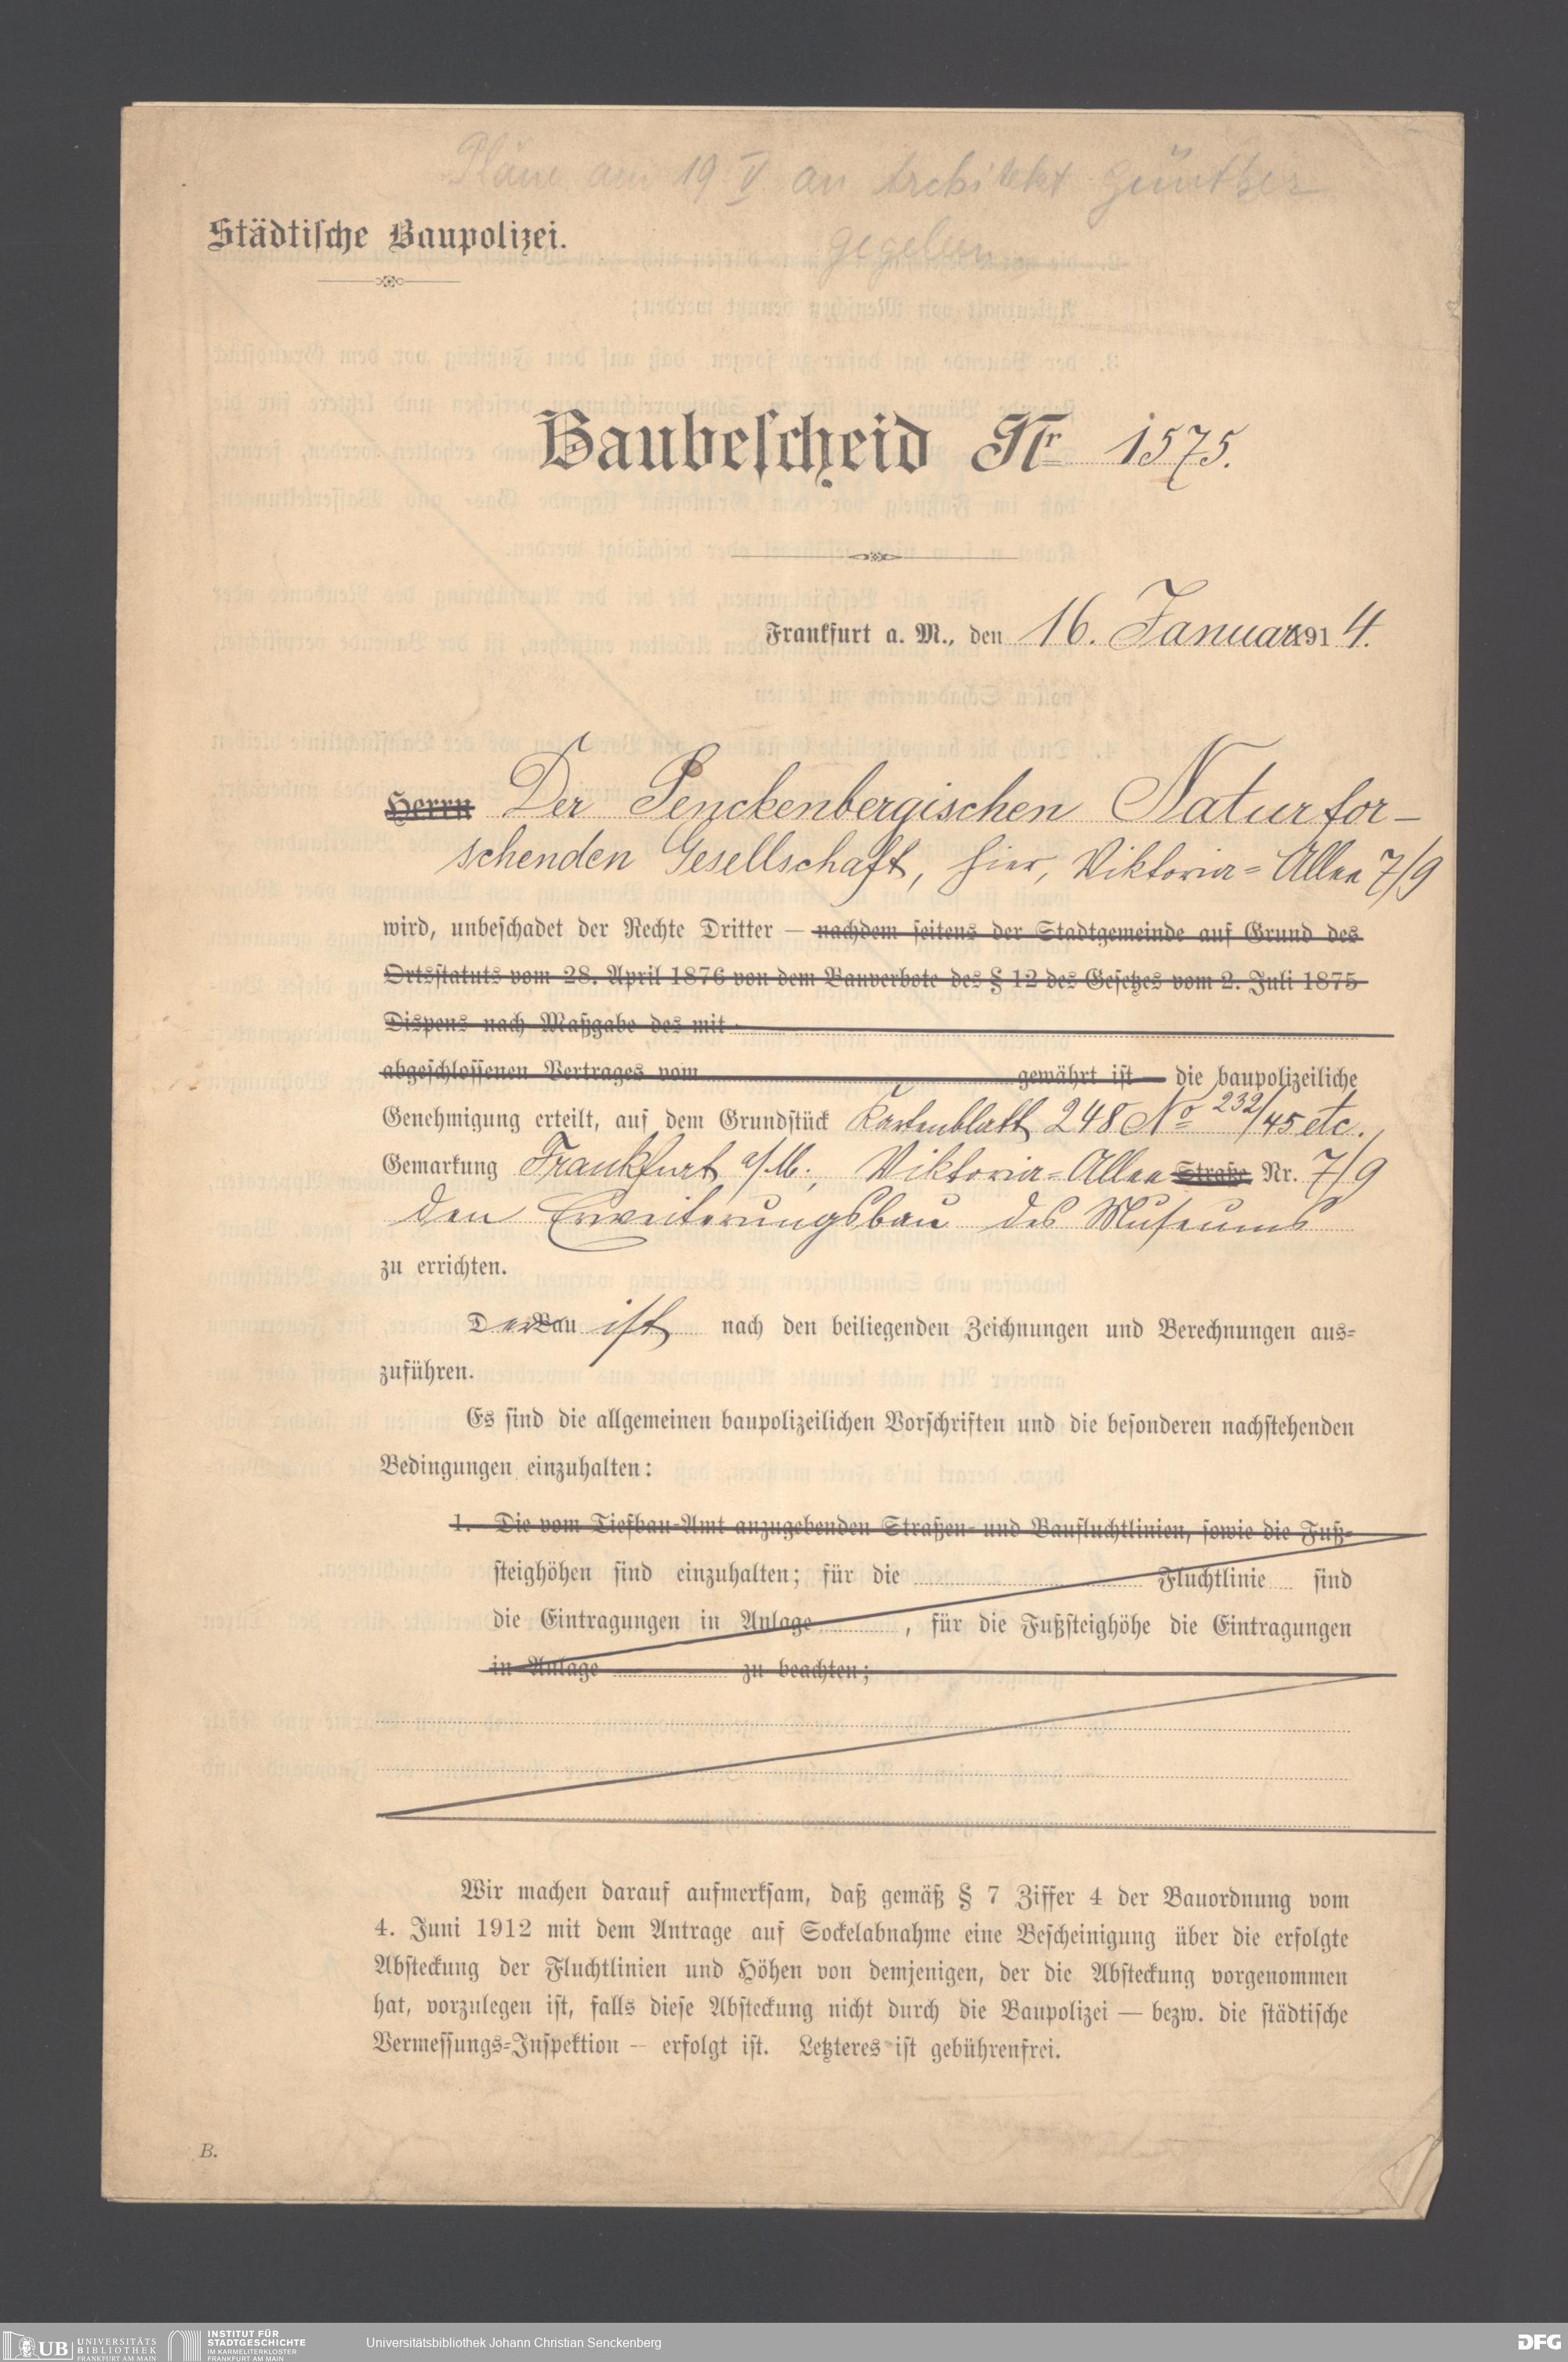 Pläne am 19 V an Architekt Günther
gegeben
Städtische Baupolizei.
Baubescheid Nr 1575.
Frankfurt a. M., den 16. Januar 1914.
Herrn Der Senckenbergischen Naturfor-
schenden Gesellschaft, hier, Viktoria-Allee 7/9
wird, unbeschadet der Rechte Dritter — nachdem seitens der Stadtgemeinde auf Grund des
Ortsstatuts vom 28. April 1876 von dem Bauverbote des § 12 des Gesetzes vom 2. Juli 1875
Dispens nach Maßgabe des mit
abgeschlossenen Vertrages vom gewährt ist — die baupolizeiliche
Genehmigung erteilt, auf dem Grundstück Kartenblatt 248 No 232/45 etc.
Gemarkung Frankfurt a/M., Viktoria-Allee Straße Nr. 7/9
den Erweiterungsbau des Museums
zu errichten.
Der Bau ist nach den beiliegenden Zeichnungen und Berechnungen aus-
zuführen.
Es sind die allgemeinen baupolizeilichen Vorschriften und die besonderen nachstehenden
Bedingungen einzuhalten:
1. Die vom Tiefbau-Amt anzugebenden Straßen- und Baufluchtlinien, sowie die Fuß-
steighöhen sind einzuhalten; für die Fluchtlinie sind
die Eintragungen in Anlage , für die Fußsteighöhe die Eintragungen
in Anlage zu beachten;
Wir machen darauf aufmerksam, daß gemäß § 7 Ziffer 4 der Bauordnung vom
4. Juni 1912 mit dem Antrage auf Sockelabnahme eine Bescheinigung über die erfolgte
Absteckung der Fluchtlinien und Höhen von demjenigen, der die Absteckung vorgenommen
hat, vorzulegen ist, falls diese Absteckung nicht durch die Baupolizei — bezw. die städtische
Vermessungs-Inspektion — erfolgt ist. Letzteres ist gebührenfrei.
B.
UB UNIVERSITÄTS
BIBLIOTHEK
FRANKFURT AM MAIN
INSTITUT FÜR
STADTGESCHICHTE
IM KARMELITERKLOSTER
FRANKFURT AM MAIN
Universitätsbibliothek Johann Christian Senckenberg
DFG